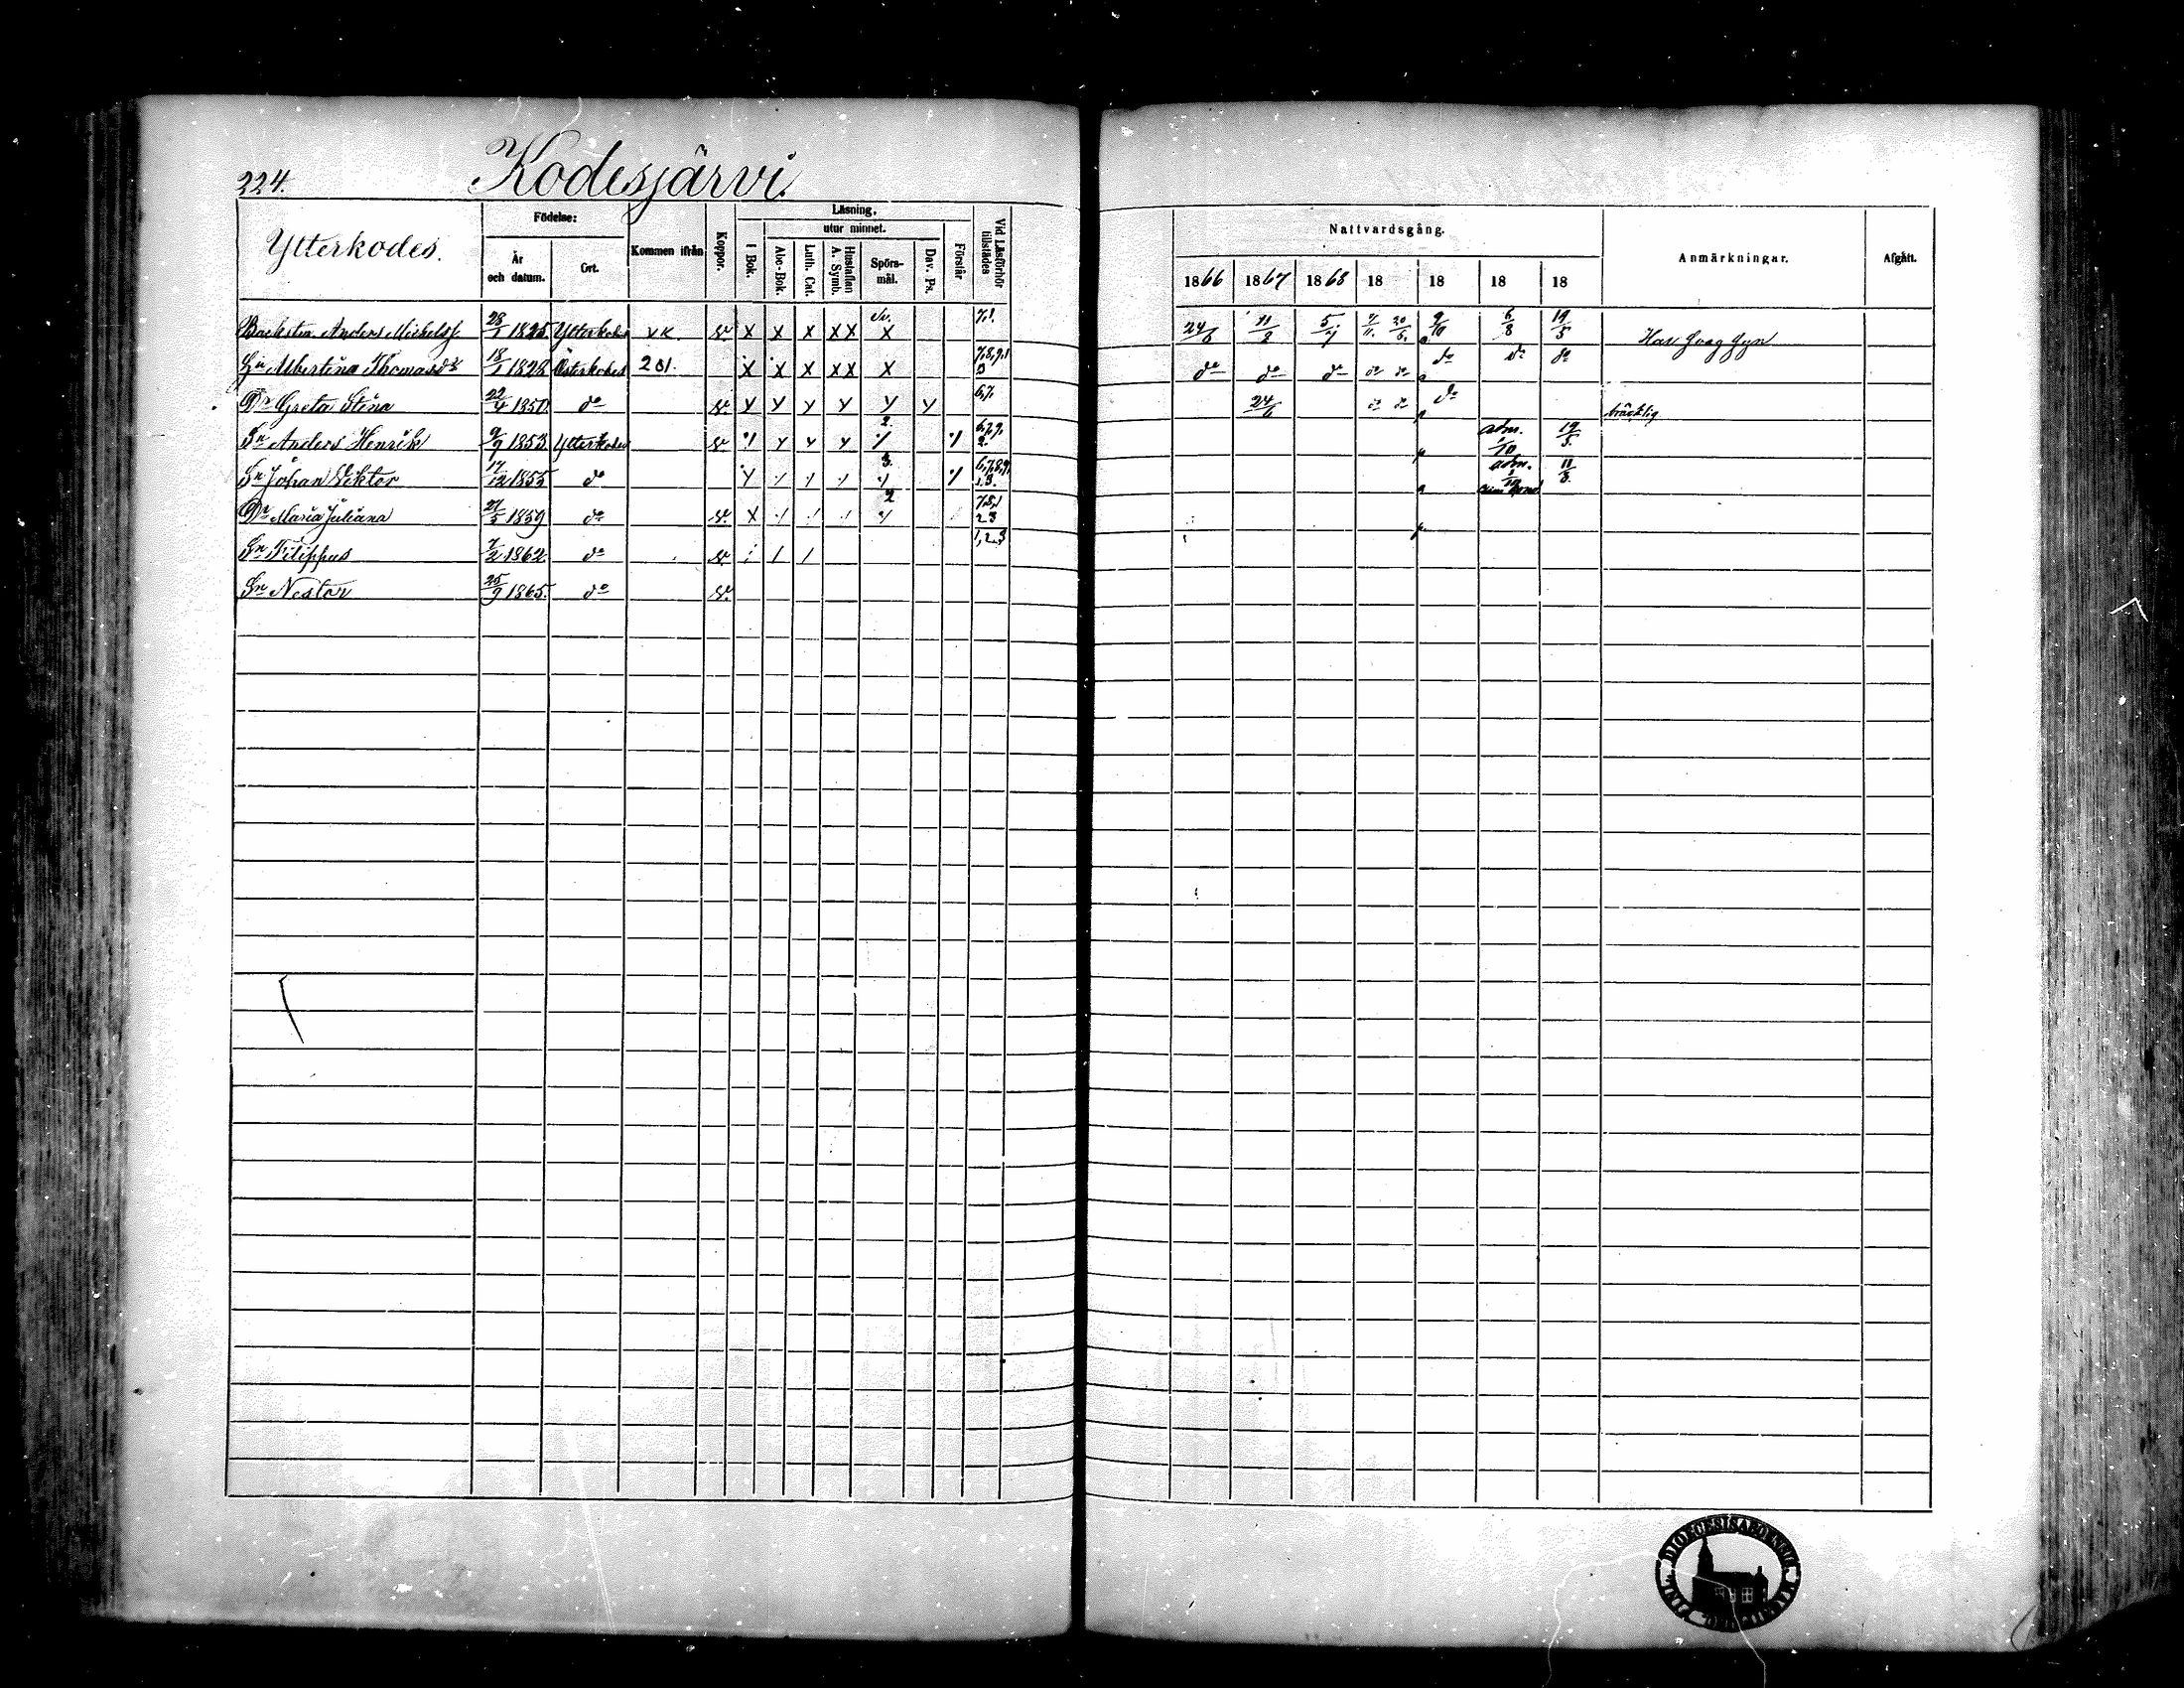 224. Kodesjärvi.
Ytterkodes.
Födelse:
År och datum.
Ort.
Kommen ifrån
Koppor.
Läsning.
I Bok.
utur minnet.
Abc-Bok.
Luth. Cat.
Hustaflan A. Symb.
Spörsmål.
Dav. Ps.
Förstår
Vid Läsförhör tillstädes
Nattvardsgång.
1866 1867 1868 18 18 18 18
Anmärkningar.
Afgått.
Anders Michelss. 28/1 1825. Ytterkodes v.k. X X X XX X 7,1. 24/6 5/7 9/10 6/8 19/5 Har svag syn
Albertina Thomasdr 18/1 1828 Österkodes 201. X X X XX X 7,8,9,1 3 do do do do do do do do
Dr Greta Stina 22/4 1850. do Y Y Y Y Y Y 6,7. 24/6 do bräcklig
Sn Anders Henrik 9/9 1853 Ytterkodes Y Y Y 2. 6,7,9, 2. adm. /10 19/5.
Sn Johan Viktor 17/12 1855 do Y 3. 6,7,8,9, 1,3. adm. /10 11/8.
Dr Maria Juliana 27/5 1859 do X 2 7,8,1 2 3
Sn Filippus 7/2 1862 do 1,2,3
Sn Nestor 25/9 1865. do